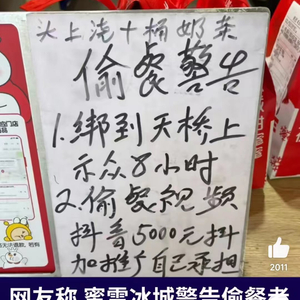 头上浇十桶奶茶
偷餐警告
1.绑到天桥上
示众8小时
2.偷餐视频
抖音5000元抖
加推广自己承担
2011
网友称,蜜雪冰城警告偷餐者